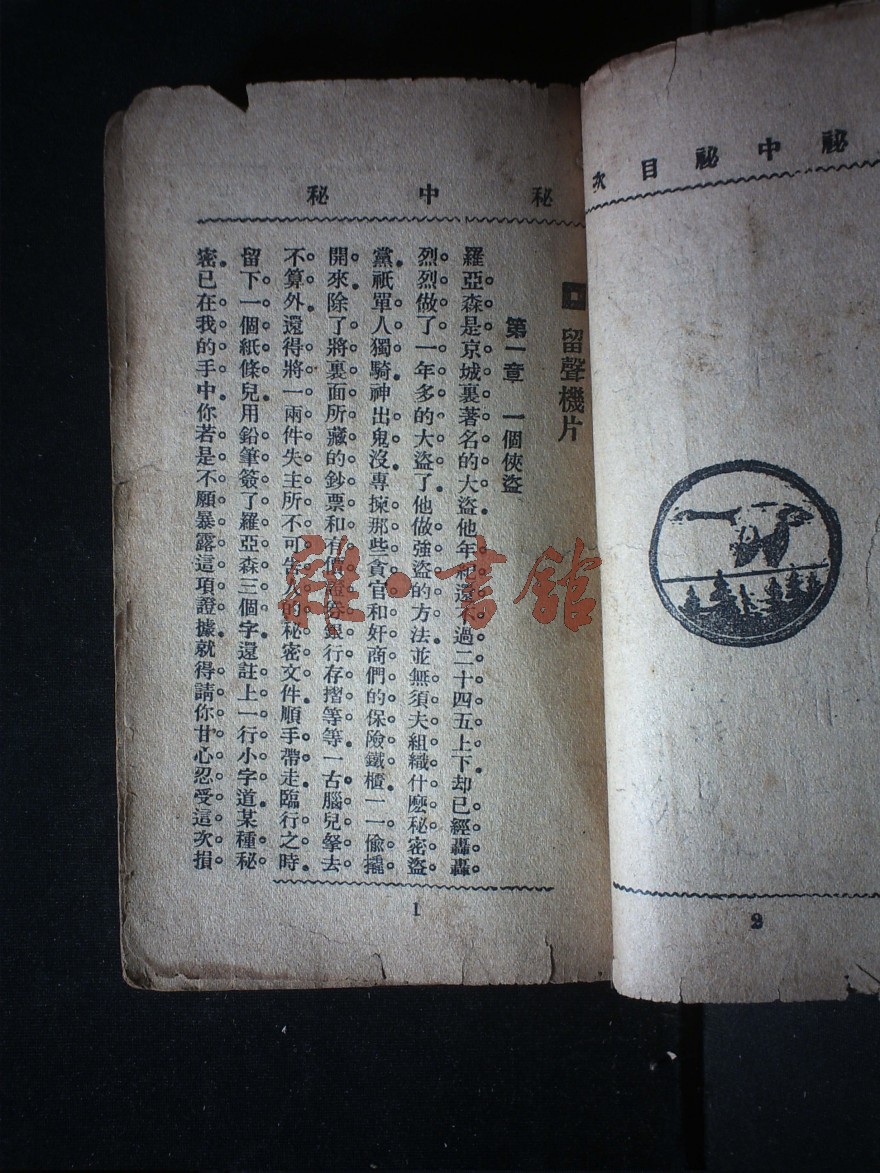 次目祕中祕
2
秘中秘
留聲機片
第一章 一個俠盜
羅亞森是京城裏著名的大盜他年紀還不過二十四五上下却已經轟轟
烈烈做了一年多的大盜了他做強盜的方法並無須夫組織什麽秘密盜
黨祇單人獨騎神出鬼沒專揀那些貪官和奸商們的保險鐵櫃一一偷撬
開來除了將裏面所藏的鈔票和有價證券銀行存摺等等一古腦兒拏去
不算外還得將一兩件失主所不可告人的秘密文件順手帶走臨行之時
留下一個紙條兒用鉛筆簽了羅亞森三個字還註上一行小字道某種秘
密已在我的手中你若是不願暴露這項證據就得請你甘心忍受這次損
1
雜·書館